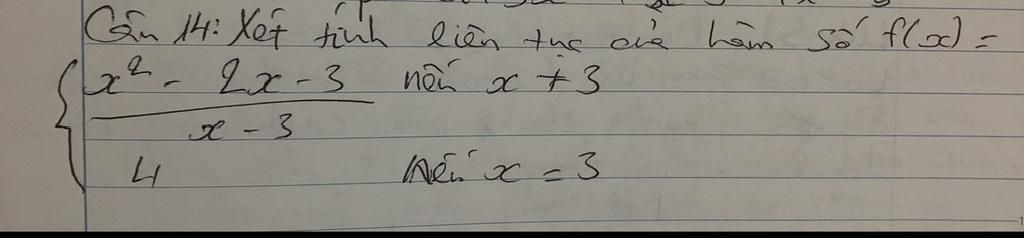 Câu 14: Xét tính liên tục của hàm số f(x) =
x² - 2x - 3 nếu x ≠ 3
x - 3
4 nếu x = 3